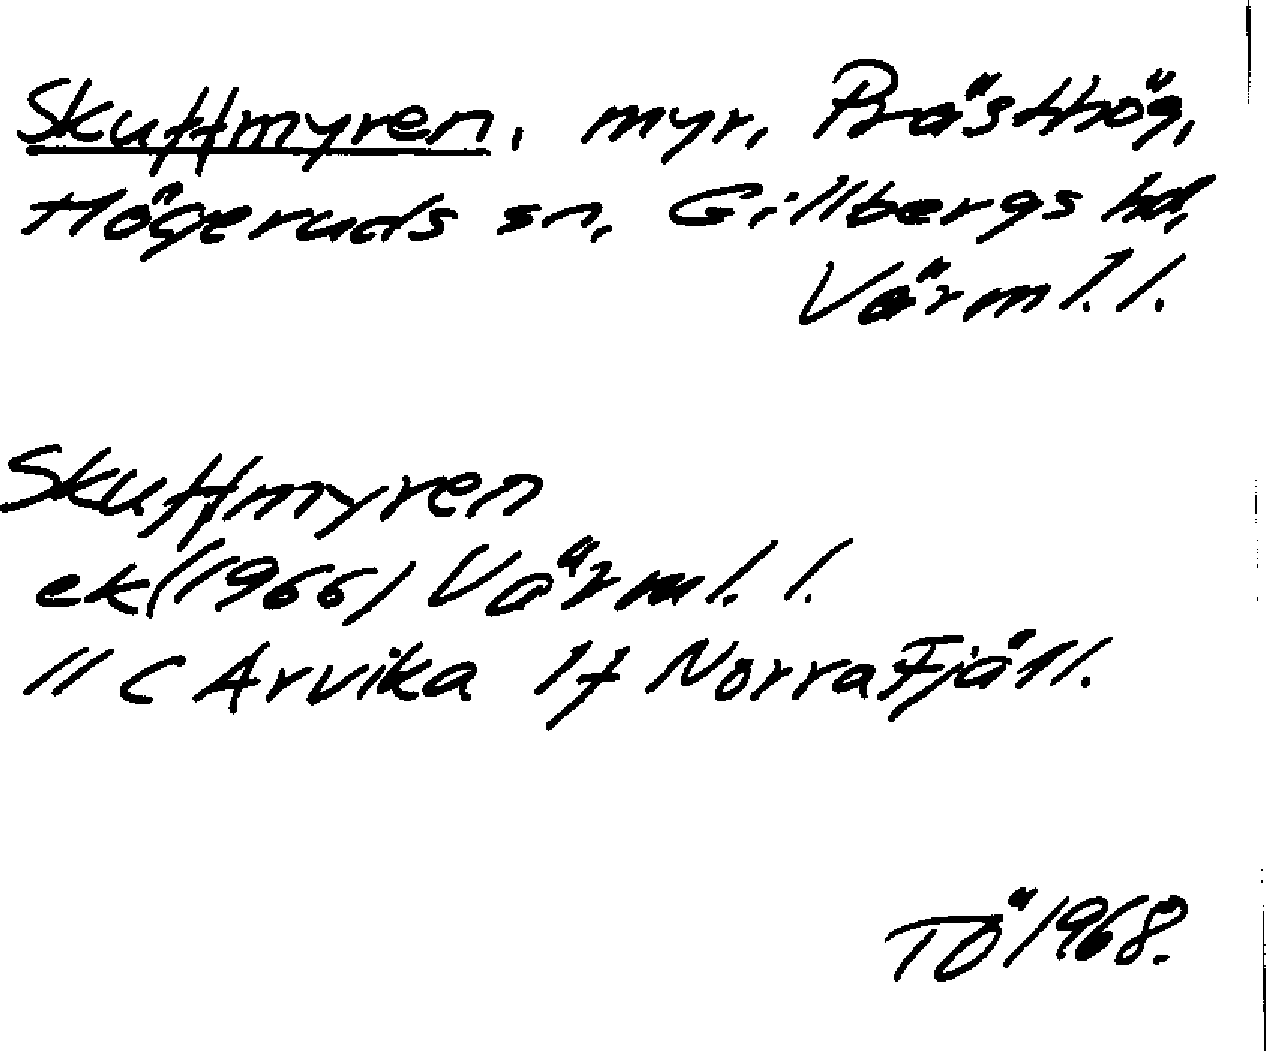 Skuffmyren, myr, Prästhög,
Högeruds sn, Gillbergs hd,
Värml. l.
Skuffmyren
ek (1966) Värml. l.
11 C Arvika 1 f Norra Fjäll.
TÖ 1968.